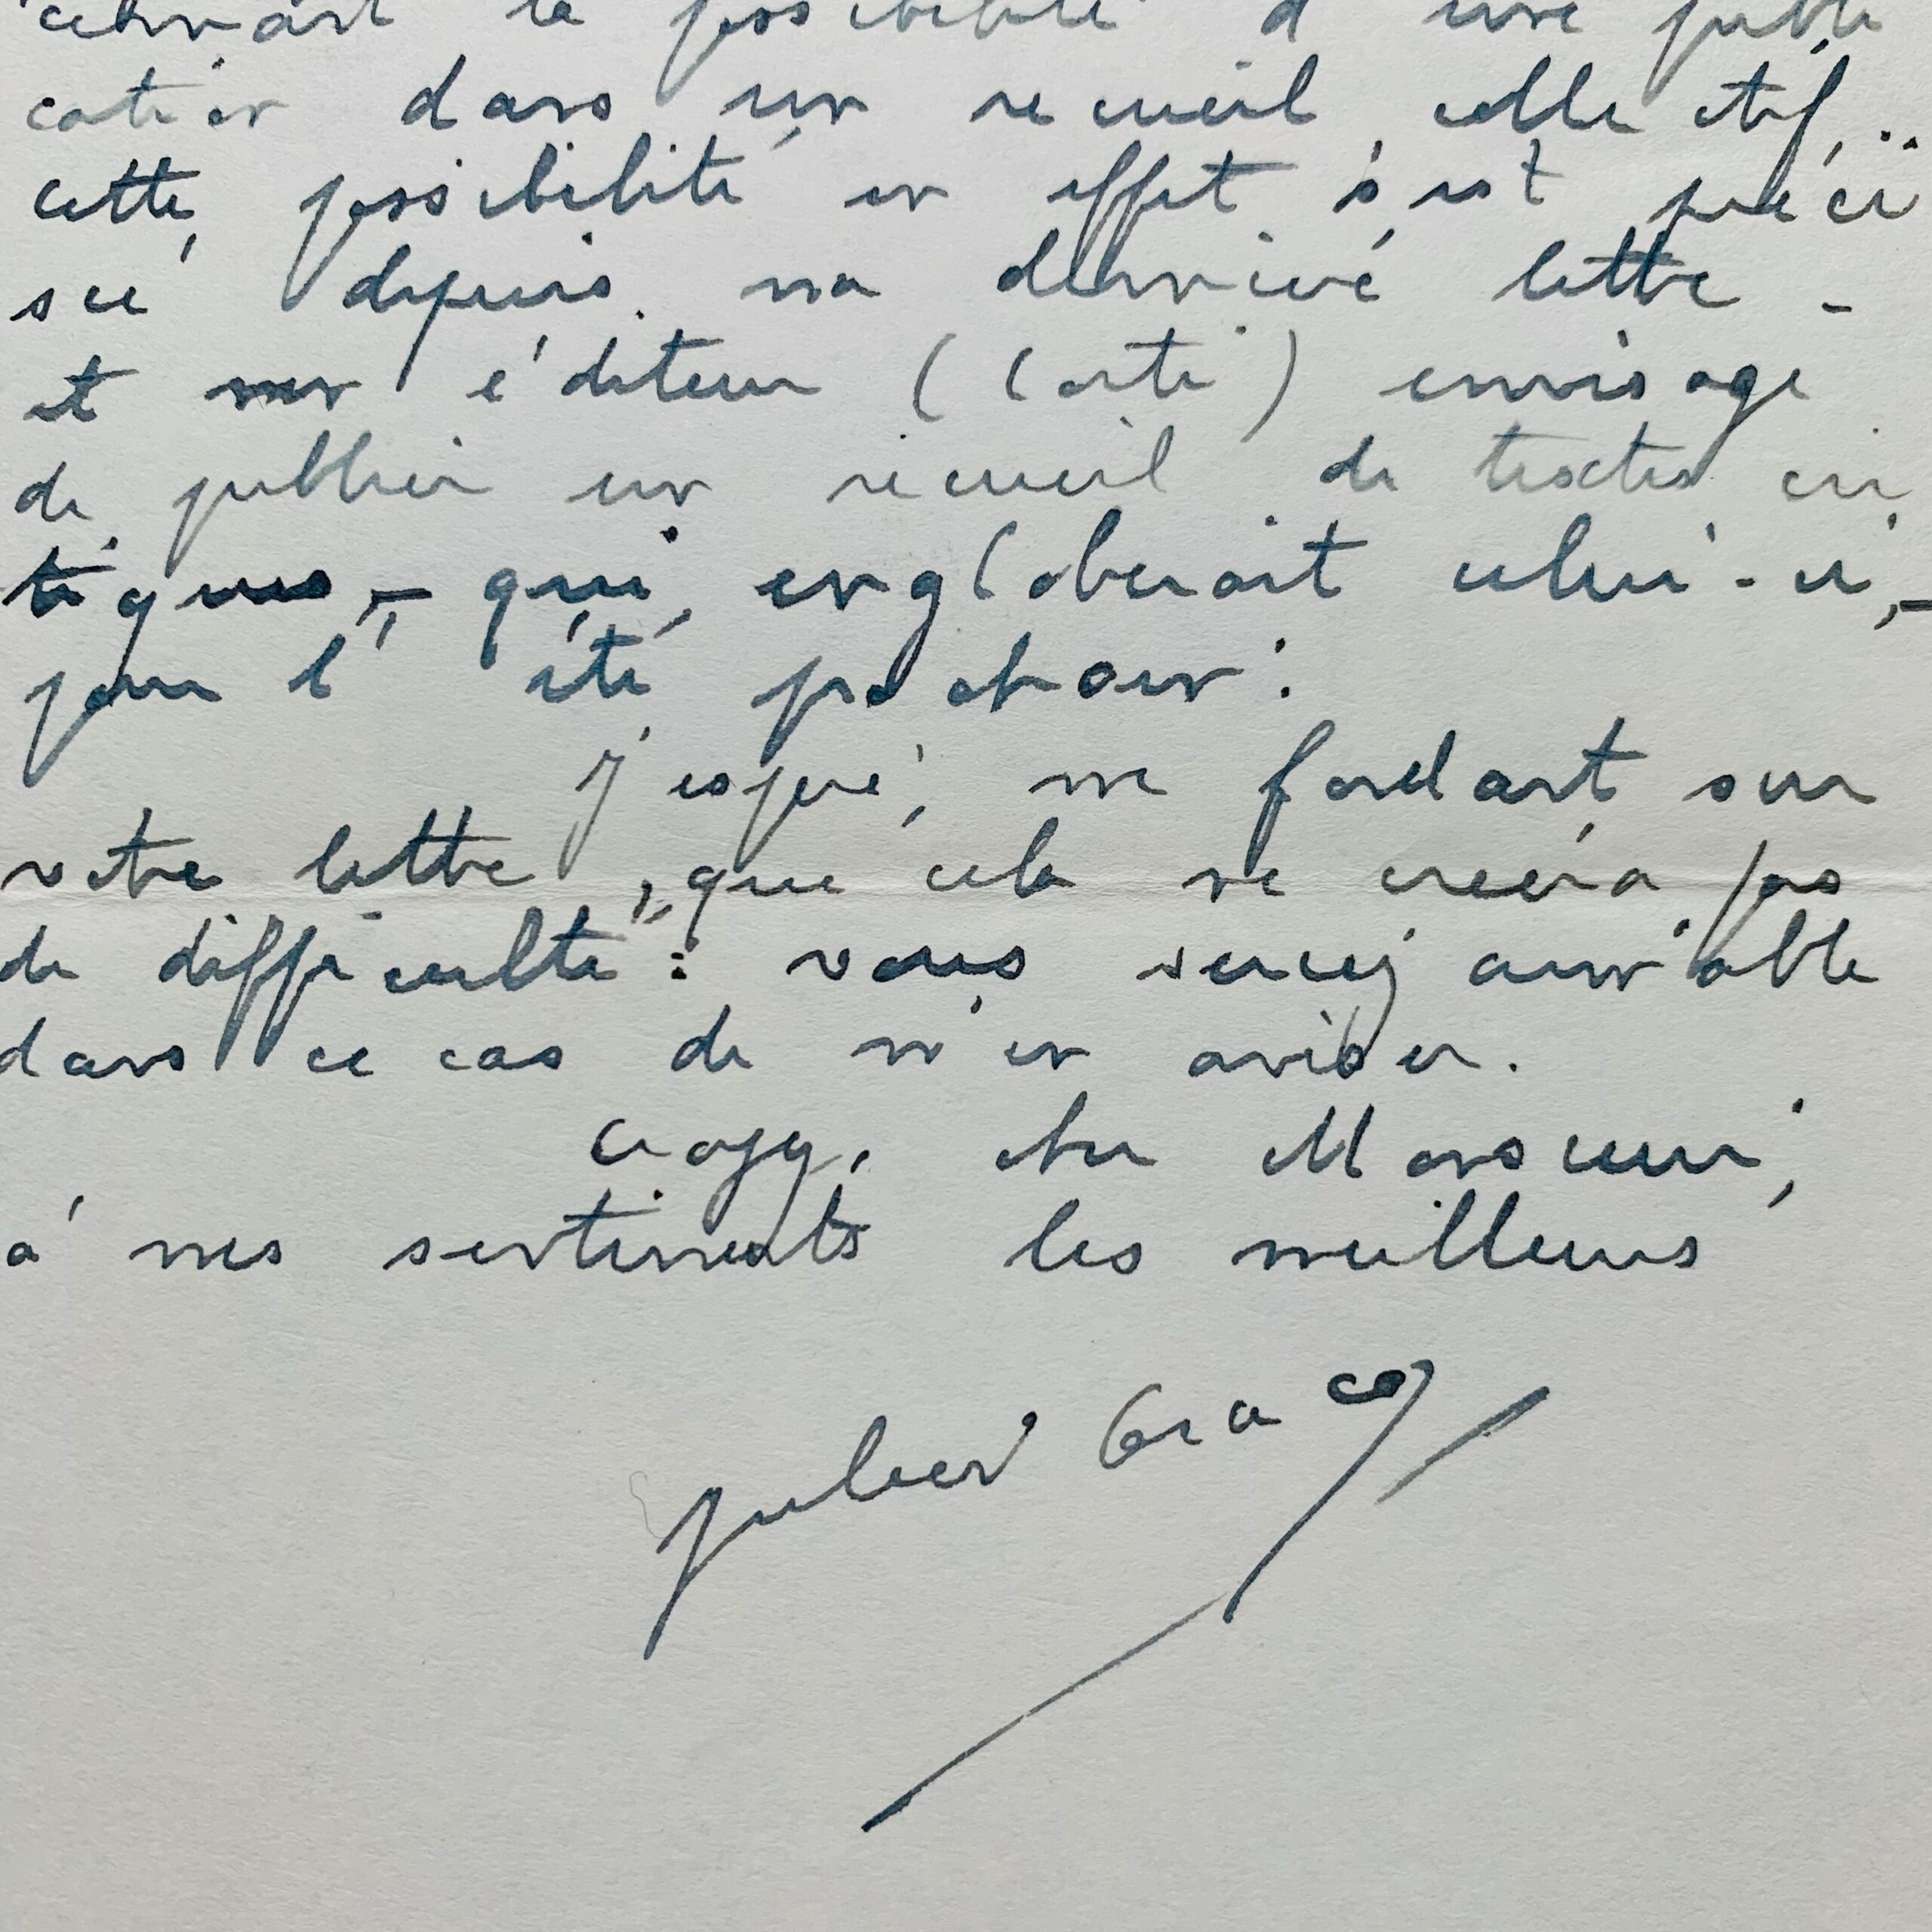 la possibilité d'une publi
cation dans un recueil collectif.
Cette possibilité en effet s'est préci
sée depuis ma dernière lettre -
et mon éditeur (Corti) envisage
de publier un recueil de textes cri
tiques, - qui engloberait celui-ci, -
pour l'été prochain.
J'espère, me fondant sur
votre lettre, que cela ne créera pas
de difficulté : vous seriez aimable
dans ce cas de m'en aviser.
Croyez, cher Monsieur,
à mes sentiments les meilleurs
Julien Gracq